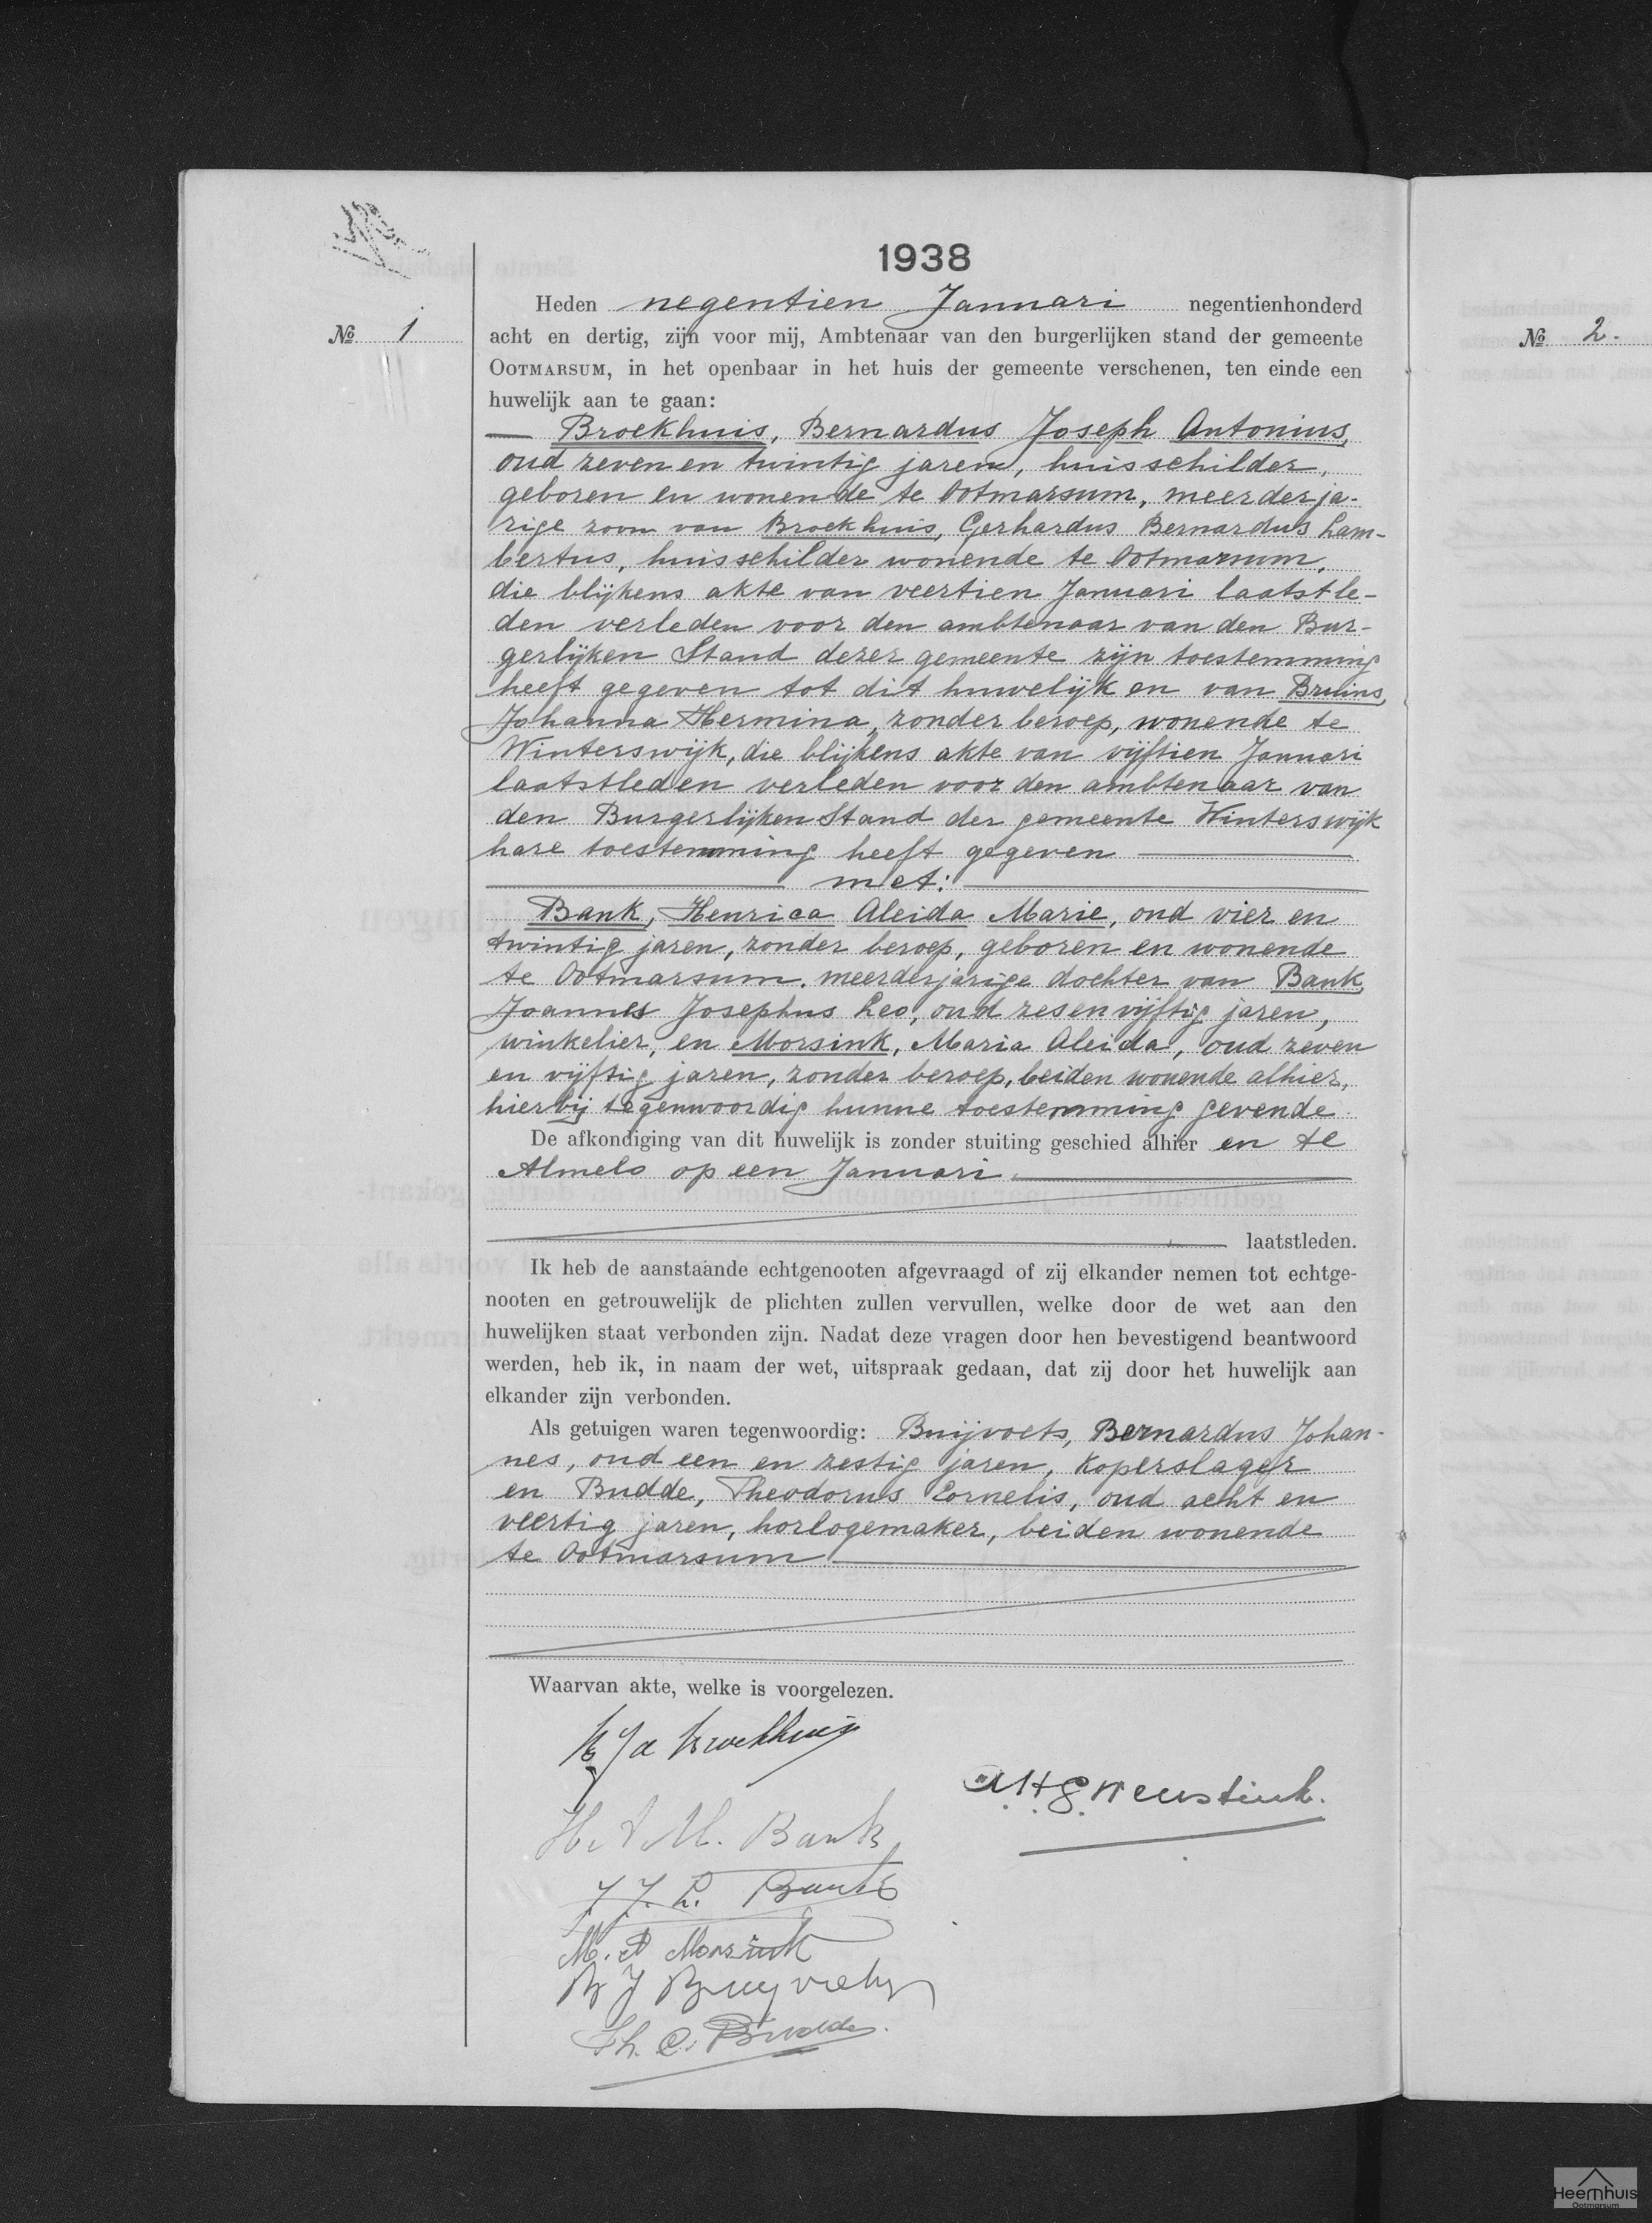 1938
Heden negentien Januari negentienhonderd
No 1
acht en dertig, zijn voor mij, Ambtenaar van den burgerlijken stand der gemeente
OOTMARSUM, in het openbaar in het huis der gemeente verschenen, ten einde een
huwelijk aan te gaan:
— Broekhuis, Bernardus Joseph Antonius,
oud zeven en twintig jaren, huisschilder,
geboren en wonende te Ootmarsum, meerderja-
rige zoon van Broekhuis, Gerhardus Bernardus Lam-
bertus, huisschilder wonende te Ootmarsum,
die blijkens akte van veertien Januari laatstle-
den verleden voor den ambtenaar van den Bur-
gerlijken Stand dezer gemeente zijn toestemming
heeft gegeven tot dit huwelijk en van Bruins,
Johanna Hermina, zonder beroep, wonende te
Winterswijk, die blijkens akte van vijftien Januari
laatstleden verleden voor den ambtenaar van
den Burgerlijken Stand der gemeente Winterswijk
hare toestemming heeft gegeven —
— met: —
Bank, Henrica Aleida Marie, oud vier en
twintig jaren, zonder beroep, geboren en wonende
te Ootmarsum, meerderjarige dochter van Bank,
Joannes Josephus Leo, oud zesenvijftig jaren,
winkelier, en Morsink, Maria Aleida, oud zeven
en vijftig jaren, zonder beroep, beiden wonende alhier,
hierbij tegenwoordig hunne toestemming gevende
De afkondiging van dit huwelijk is zonder stuiting geschied alhier en te
Almelo op een Januari —
— laatstleden.
Ik heb de aanstaande echtgenooten afgevraagd of zij elkander nemen tot echtge-
nooten en getrouwelijk de plichten zullen vervullen, welke door de wet aan den
huwelijken staat verbonden zijn. Nadat deze vragen door hen bevestigend beantwoord
werden, heb ik, in naam der wet, uitspraak gedaan, dat zij door het huwelijk aan
elkander zijn verbonden.
Als getuigen waren tegenwoordig: Buijvoets, Bernardus Johan-
nes, oud een en zestig jaren, koperslager
en Budde, Theodorus Cornelis, oud acht en
veertig jaren, horlogemaker, beiden wonende
te Ootmarsum. —
Waarvan akte, welke is voorgelezen.
B J A Broekhuis
H. A M. Bank
J. J. L. Bank
M. A Morsink
B J Buyvoets
Th. C. Budde.
No 2.
Heemhuis
Ootmarsum